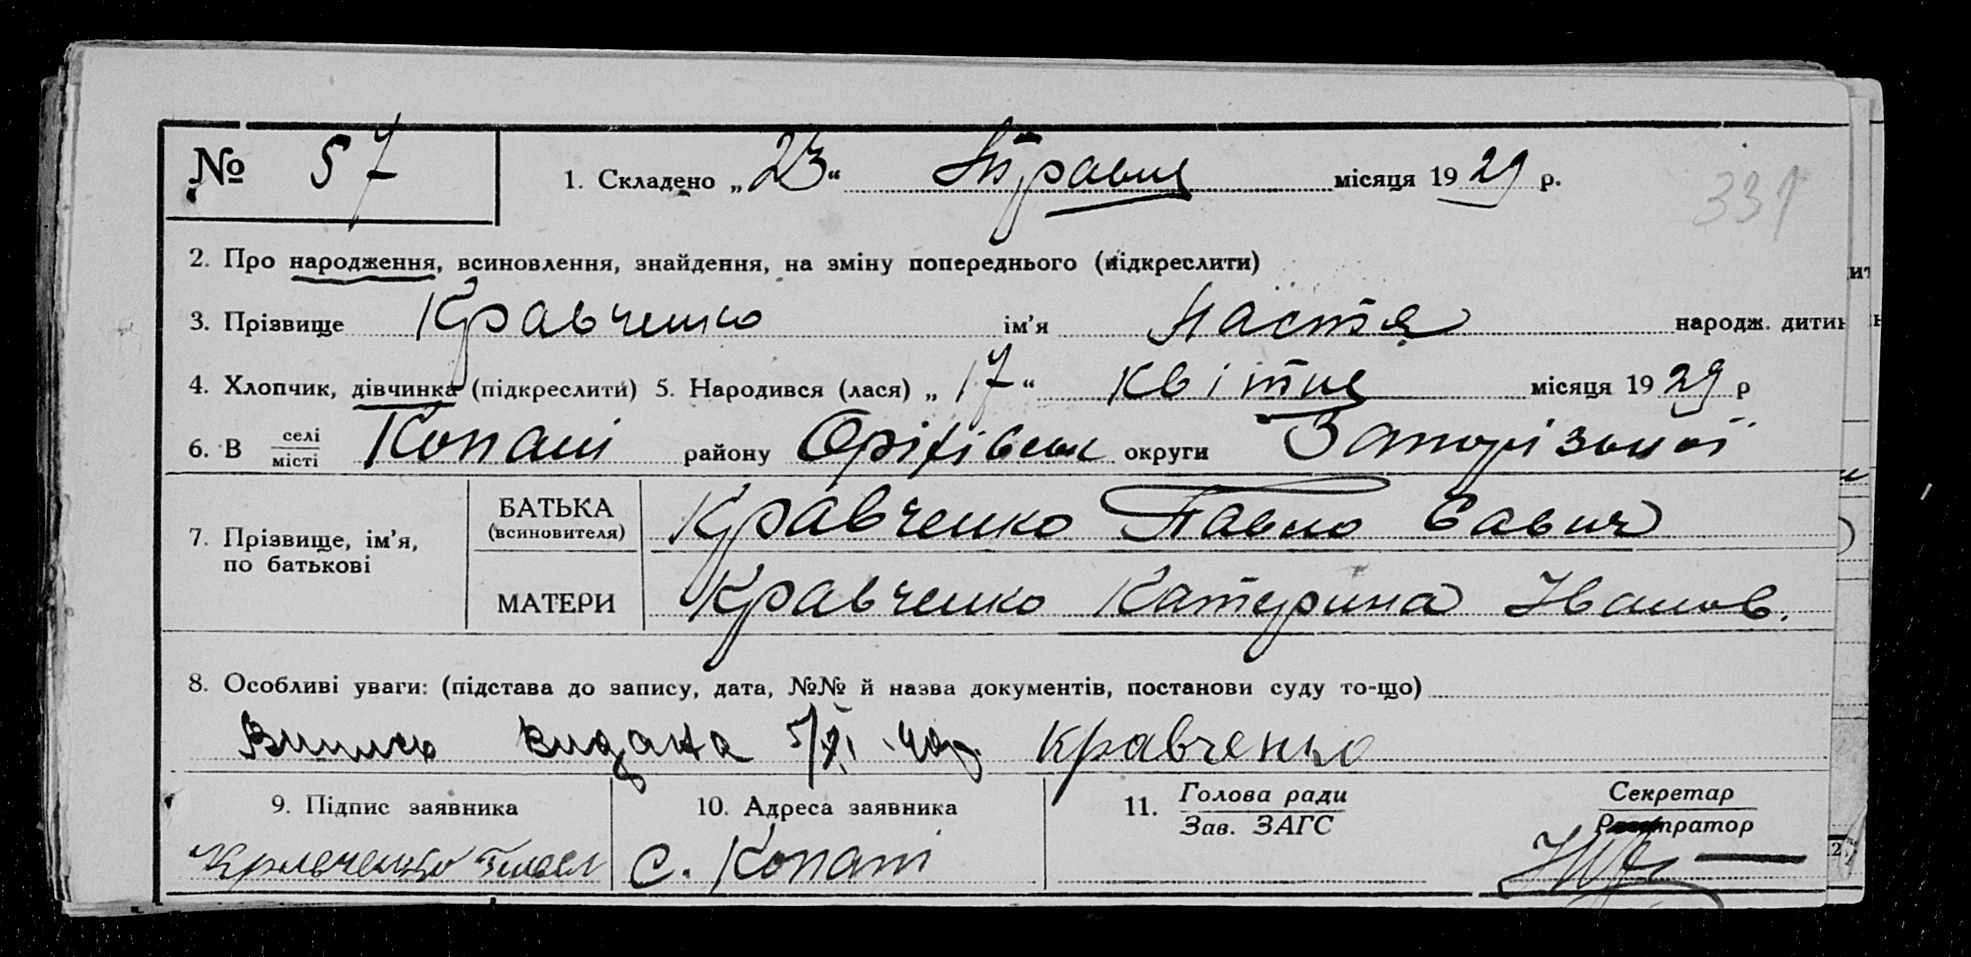 № 57 1. Складено „23“ Травня місяця 1929 р.
331
2. Про народження, всиновлення, знайдення, на зміну попереднього (підкреслити)
3. Прізвище Кравченко ім'я Настя народж. дитин
4. Хлопчик, дівчинка (підкреслити) 5. Народився (лася) „17“ квітня місяця 1929 р
6. В селі/місті Копані району Оріхівськ округи Запорізької
7. Прізвище, ім'я, по батькові
БАТЬКА (всиновителя) Кравченко Павло Савич
МАТЕРИ Кравченко Катерина Іванов.
8. Особливі уваги: (підстава до запису, дата, №№ й назва документів, постанови суду то-що)
Видана 5/XI Кравченко
9. Підпис заявника 10. Адреса заявника 11. Голова ради/Зав. ЗАГС Секретар/Реєстратор
Кравченко с. Копані